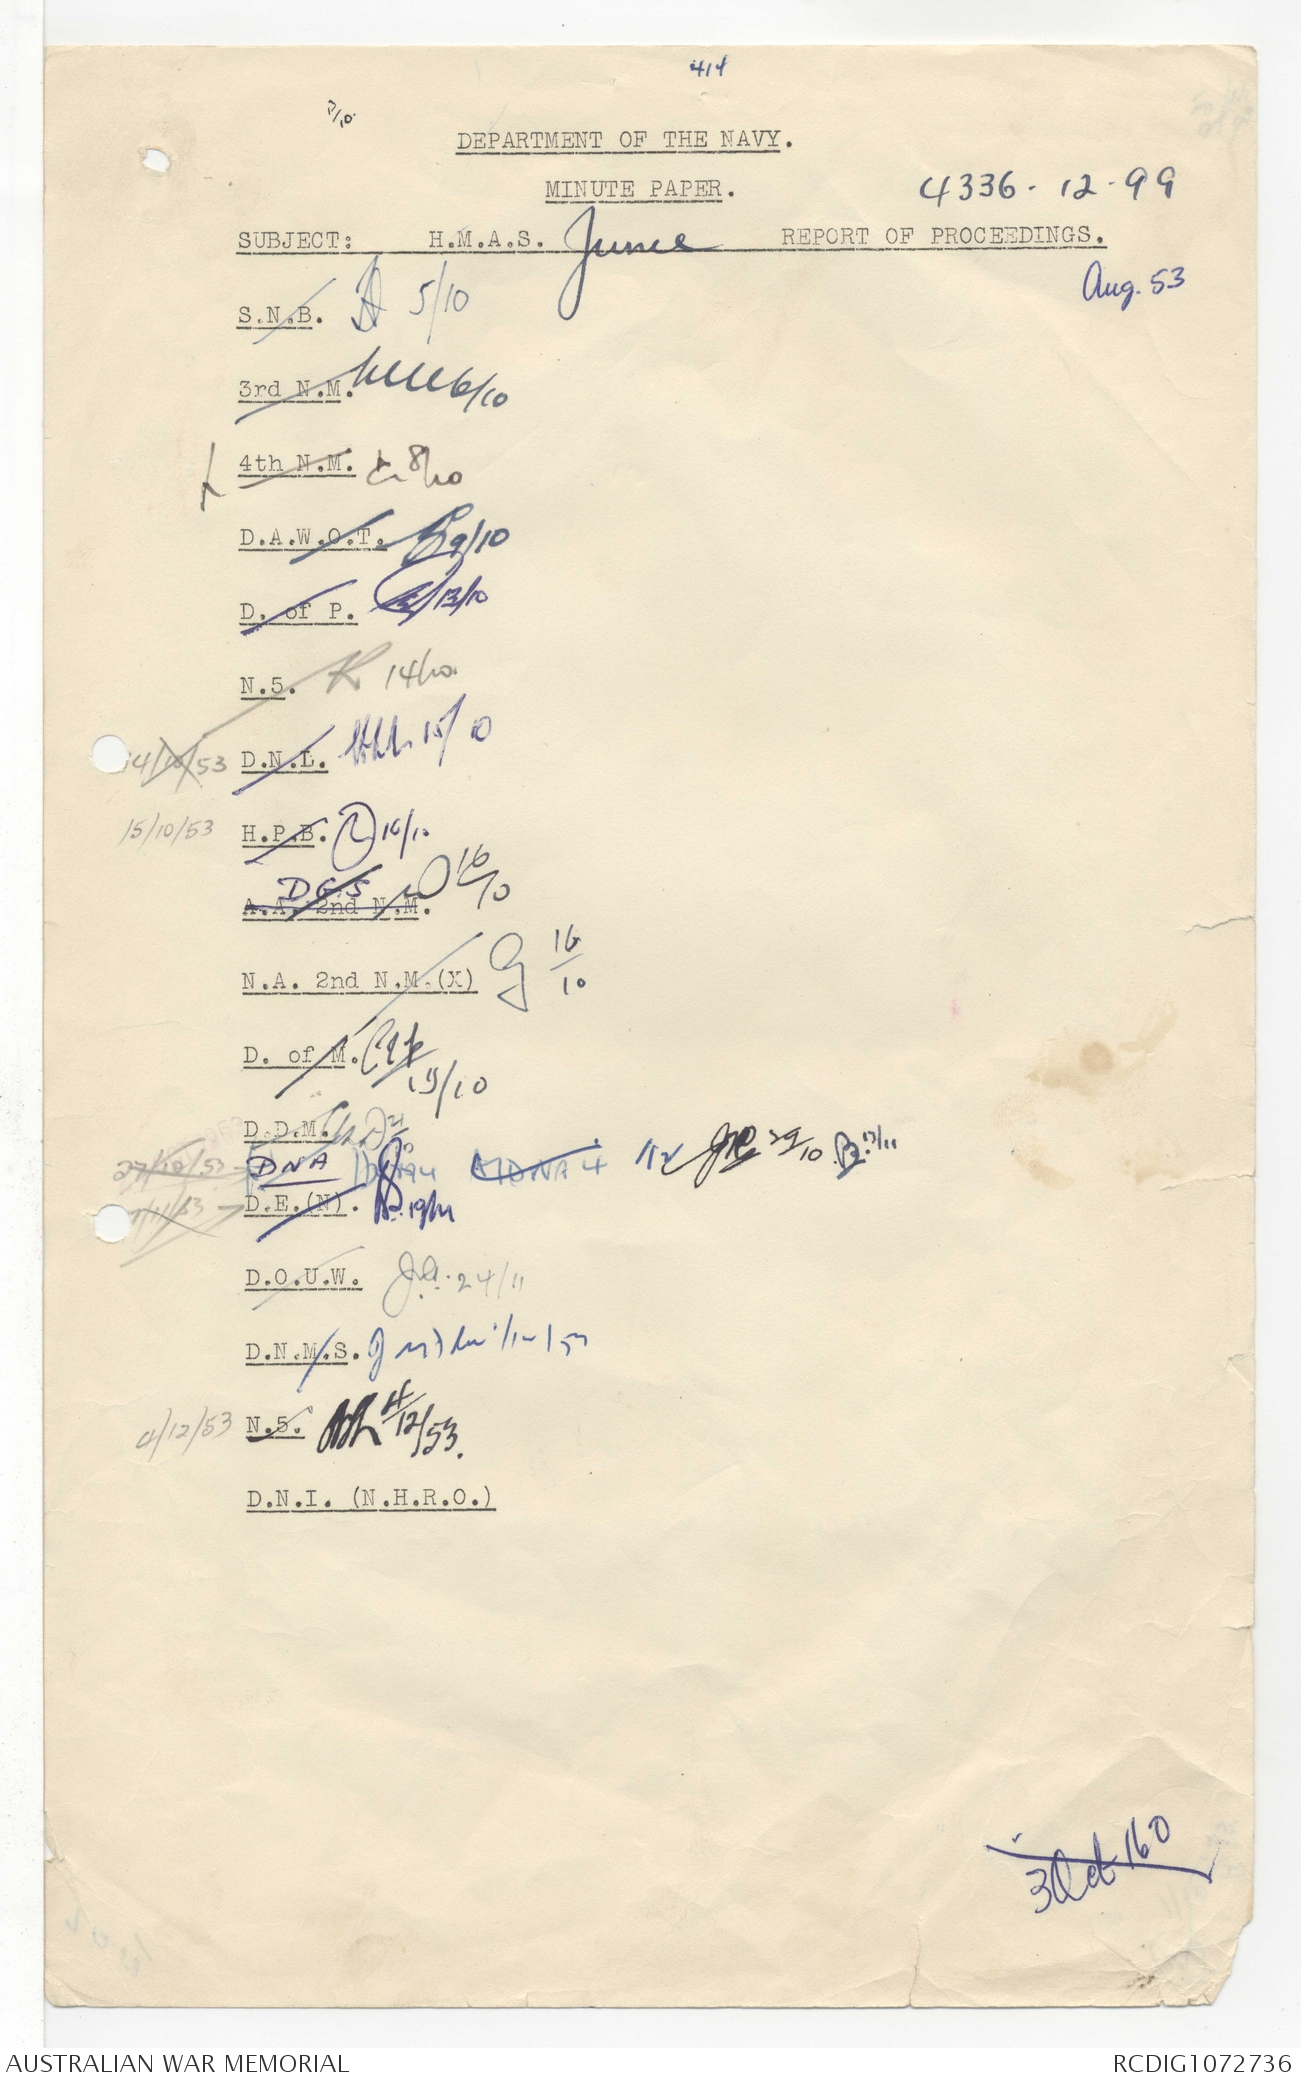 414
DEPARTMENT OF THE NAVY.
MINUTE PAPER.
4336-12-99
SUBJECT: H.M.A.S. Junee REPORT OF PROCEEDINGS.
Aug. 53
S.N.B. 5/10
3rd N.M. 6/10
4th N.M. 8/10
D.A.W.O.T. 9/10
D. of P. 13/10
N.5. 14/10
14/10/53 D.N.L. 15/10
15/10/53 H.P.B. 16/10
DGS 16/10
A.A. 2nd N.M.
N.A. 2nd N.M.(X) 16/10
D. of M. 19/10
D.D.M. 21
27/10/53 DNA ADNA4 29/10 17/11
D.E.(N). 19/11
D.O.U.W. 24/11
D.N.M.S.
4/12/53 N.5. 4/12/53.
D.N.I. (N.H.R.O.)
3 Oct 160
AUSTRALIAN WAR MEMORIAL RCDIG1072736